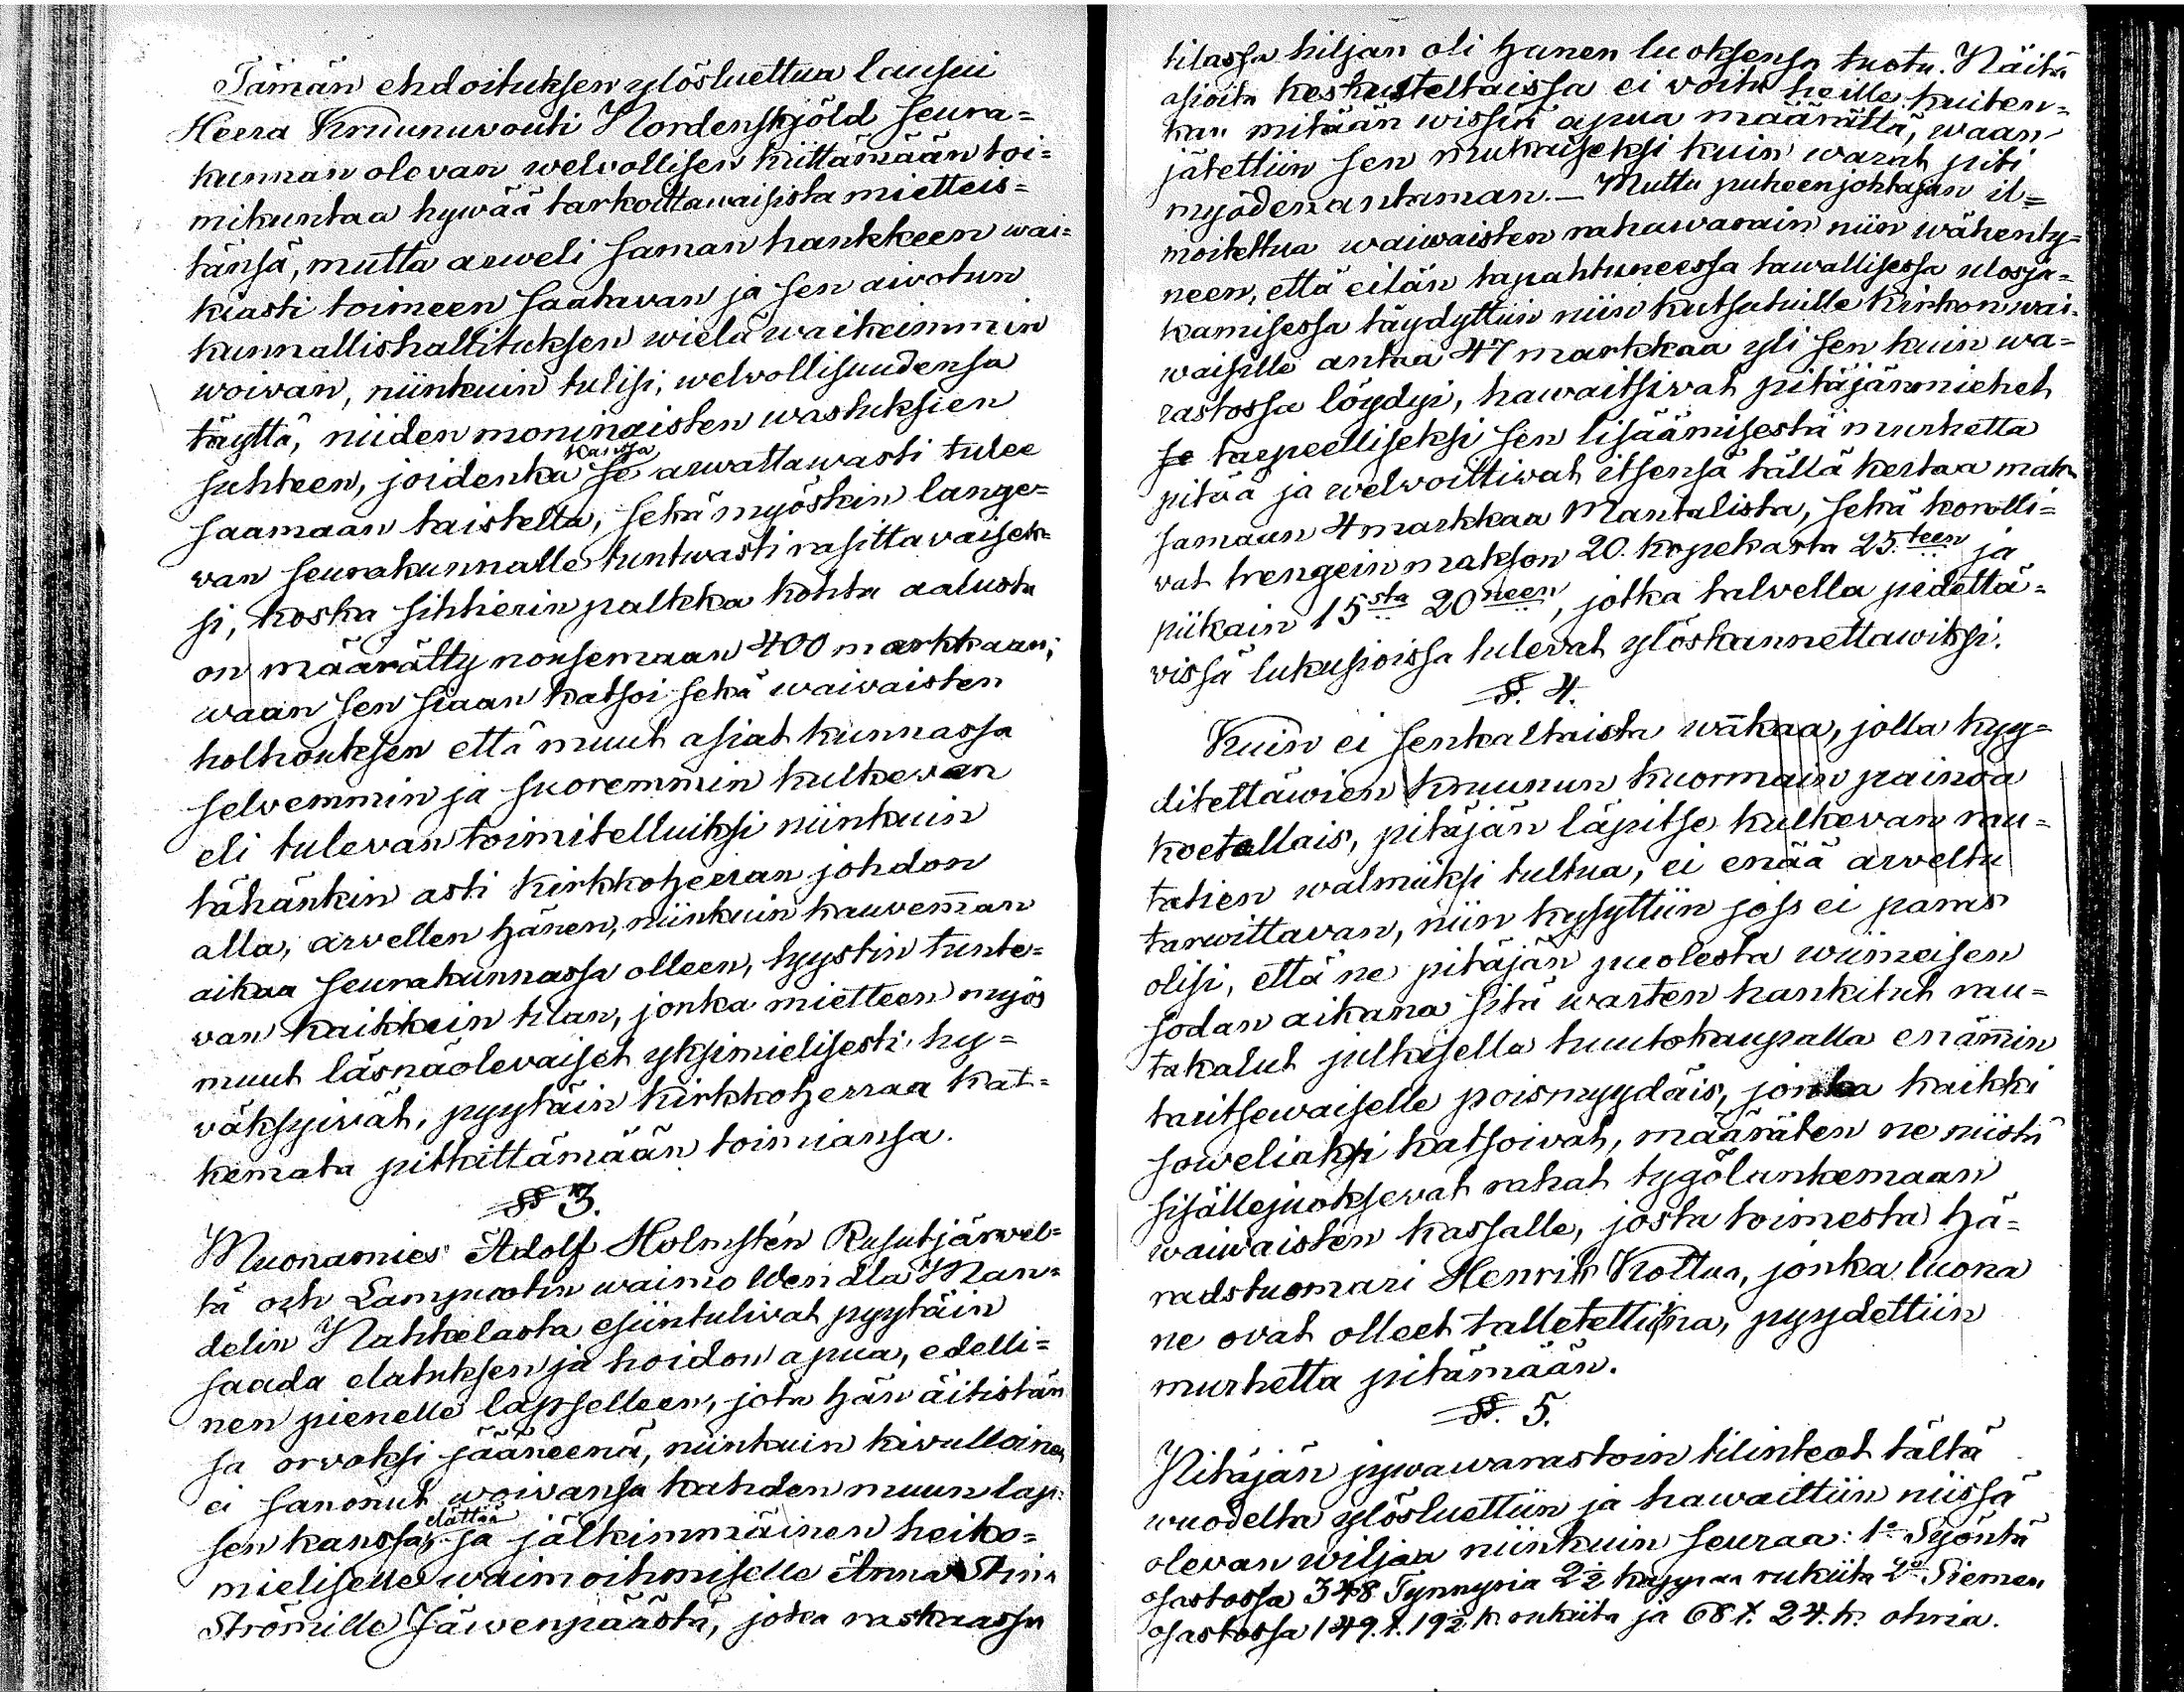 Tämän ehdoituksen ylösluettua lausui
Heera Kruununvouti Nordenskjöld seura=
kunnan olevan welvollisen kiittämään toi=
mikuntaa hywää tarkoittawaisista mietteis=
tänsä, mutta arweli saman hankkeen wai=
kiasti toimeen saatavan ja sen aivotun
kunnallishallituksen wielä waikeimmin
woivan, niinkuin tulisi, welvollisuudensa
täyttä, niiden moninaisten wastuksien
suhteen, joidenka kanssa se arwattawasti tulee
saamaan taistella, sekä myöskin lange=
van seurakunnalle tuntuvasti rasittavaisek=
si, koska sihtierin palkka kohta aalusta
on määrätty nousemaan 400 markkaan;
waan sen siaan katsoi sekä waivaisten
holhouksen että muut asiat kunnassa
selvemmin ja suoremmin kulkevan
eli tulevan toimitelluiksi niinkuin
tähänkin asti kirkkoheeran johdon
alla, arvellen hänen, niinkuin kauvem̄an
aikaa seurakunnassa olleen, tyystin tunte=
van kaikkein tilan, jonka mietteen myös
muut läsnäolevaiset yksimielisesti hy=
väksyivät, pyytäin kirkkoherraa kat=
kemata pitkittämään toimiansa.
§ 3.
Muonamies Adolf Holmstén Rusutjärwel=
tä och Lampuotin waimo Wendla Man=
delin Nahkelasta esiintulivat pyytäin
saada elatuksen ja hoidon apua, edelli=
nen pienelle lapselleen, jota hän äitistän
sä orvoksi jääneenä, niinkuin kivulloinen
ei sanonut woivansa kahden muun lap=
sen kanssa elättää, ja jälkimmäinen heiko=
mieliselle waimoihmiselle Anna Stina
Strömille Jäwenpäästä, joka raskaassa
tilassa hiljan oli hänen luoksensa tuotu. Näitä
asioita keskusteltaissa ei voitu heille kuiten=
kan mitään wissiä apua määrättä, waan
jätettiin sen mukaiseksi kuin warat piti
myödenantaman. — Mutta puheenjohtajan il=
moitettua waiwaisten rahawarain niin wähenty=
neen, että eilän tapahtuneessa tawallisessa ulosja=
kamisessa täydyttiin niin kutsutuille kirkon wai=
waisille antaa 47 markkaa yli sen kuin wa=
rastossa löydyi, hawaitsivat pitäjänmiehet
se tarpeelliseksi sen lisäämisestä murhetta
pitää ja welvoittiwat itsensä tällä kertaa mak=
samaan 4 markkaa Mantalista, sekä korolli=
vat trengein makson 20 kopekasta 25 teen ja
piikain 15 sta 20 neen, jotka talvella pidettä=
vissä lukusioissa tulevat ylöskannettawiksi.
§. 4.
Kuin ei senkaltaista wäkaa, jolla kyy=
ditettäwien kruunun kuormain painoa
koetellais, pitäjän läpitse kulkevan rau=
tatien walmiiksi tultua, ei enää arveltu
tarwittavan, niin kysyttiin jos ei paras
olisi, että ne pitäjän puolesta wiimeisen
sodan aikana sitä warten hankitut rau=
takalut julkisella huutokaupalla enäm̄in
taritsewaiselle poismyydäis, jonka kaikki
soweliaksi katsoivat, määräten ne niistä
sisällejuoksevat rahat tygölankemaan
waiwaisten kassalle, josta toimesta Hä=
radstuomari Henrik Kottua, jonka luona
ne ovat olleet talletettuina, pyydettiin
murhetta pitämään.
§. 5.
Pitäjän jywawarastoin tilinteot tältä
wuodelta ylösluettiin ja hawaittiin niissä
olevan wiljaa niinkuin seuraa: 1o Syöntä
osastossa 348 Tynnyria 2½ kappaa rukiita 2o Siemen
osastossa 149. t. 19½ k. rukiita ja 68 t. 24. k. ohria.